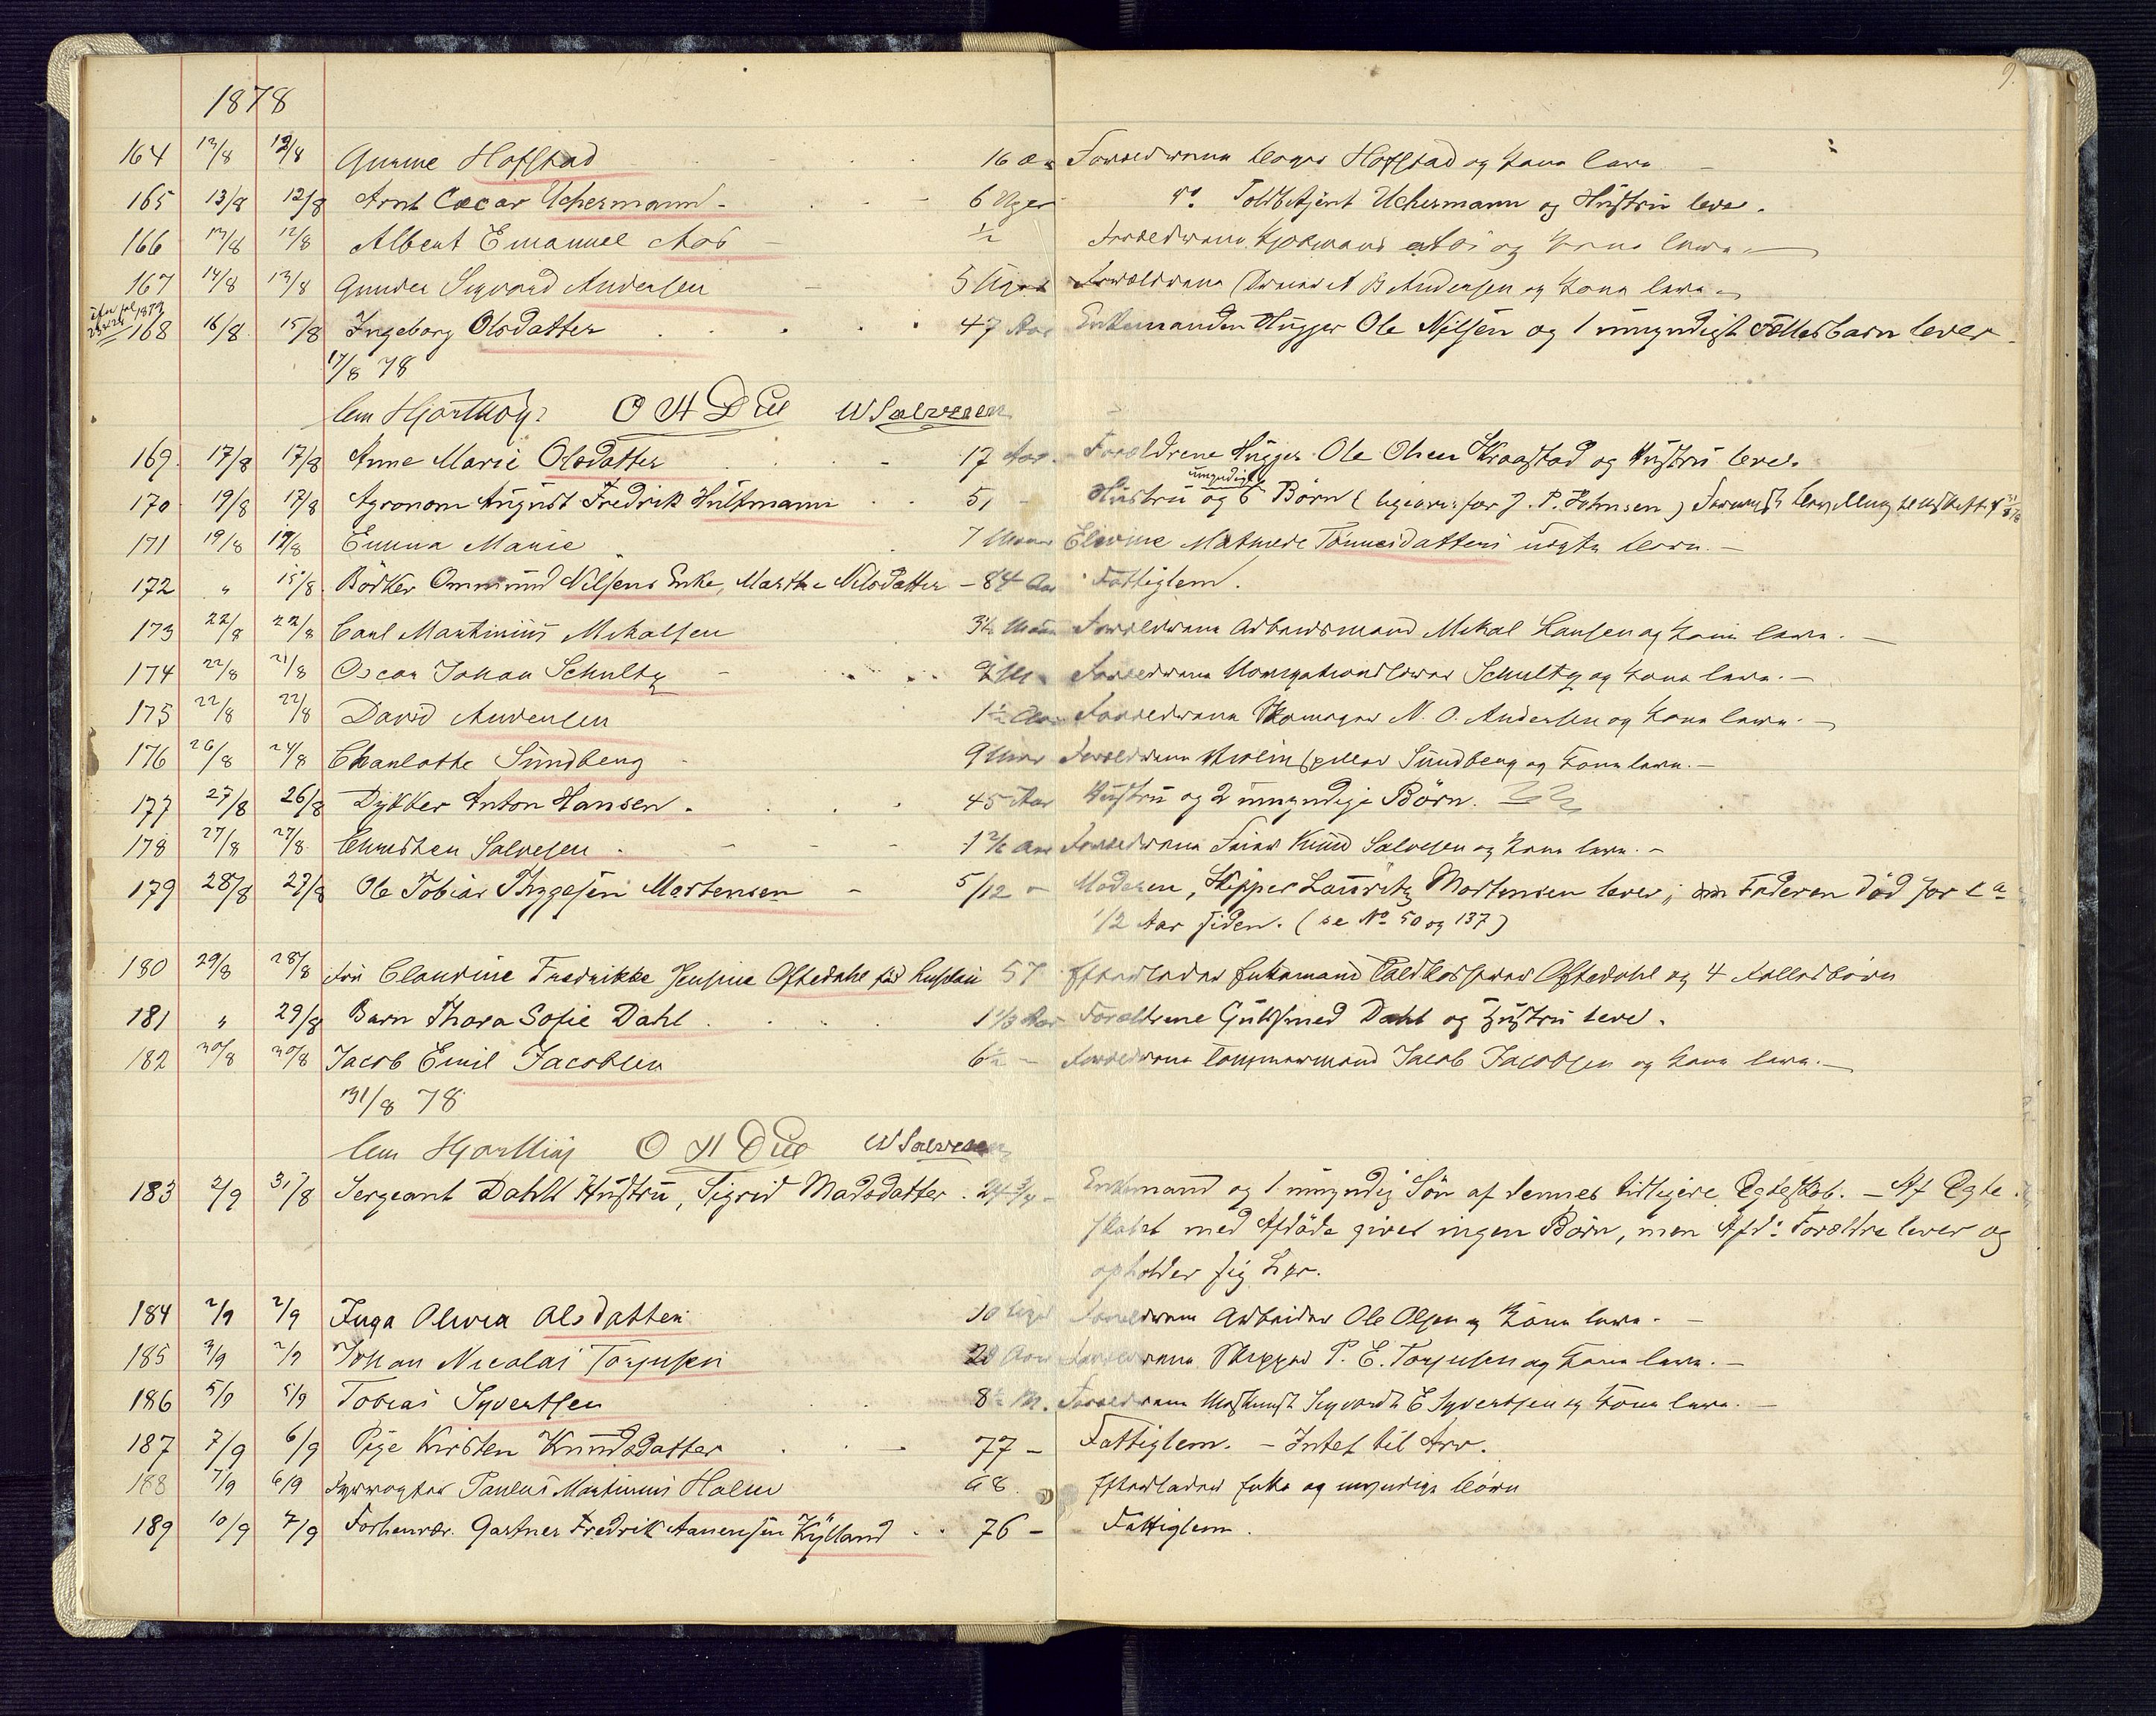 9.
1878
164 13/8 12/8 Gunne Hofstad 16 Forældrene Hofstad og Kone leve –
165 13/8 12/8 Arnt Oscar Uchermann – 6 Uger do. Toldbetjent Uchermann og Hustru leve.
166 13/8 12/8 Albert Emanuel Aas – 1/2 Forældrene Aas og Kone leve. –
167 14/8 13/8 Gunder Sigvard Andersen – 5 Uger Forældrene A B Andersen og Kone leve –
168 16/8 15/8 Ingeborg Olsdatter 47 Aar Enkemanden Hugger Ole Nilsen og 1 umyndigt Fællesbarn lever.
17/8 78
O H Due W Salvesen
169. 17/8 17/8 Anne Marie Olsdatter 17 Aar. Forældrene Hugger Ole Olsen Kragstad og Hustru leve.
170 19/8 17/8 Agronom August Fredrik Hultmann 51 – Hustru og 6 umyndige Børn ( J. P. Johnsen )
171 19/8 19/8 Emma Marie 7 Maan Elevine Matmede Tønnesdatters uægte Barn. –
172 " 15/8. Bødker Ommund Nilsens Enke, Marthe Nilsdatter – 84 Aar Fattiglem.
173 22/8 22/8 Carl Martinius Mikalsen 3 1/2 Maan Forældrene Arbeidsmand Mikal Hansen og Kone leve. –
174 22/8 21/8 Oscar Johan Schultz – 9 M. Forældrene Schultz og Kone leve. –
175 22/8 22/8 David Andersen 1 1/2 Aar Forældrene Skomager N. O. Andersen og Kone leve. –
176 26/8 24/8 Charlotte Sundberg – 9 Maan Forældrene Violinspiller Sundberg og Kone leve. –
177 27/8 26/8 Dykker Anton Hansen. 45 Aar Hustru og 2 umyndige Børn.
178 27/8 27/8 Christen Salvesen. – 1 Aar Forældrene Knud Salvesen og Kone leve. –
179 28/8 27/8 Ole Tobias Thygesen Mortensen – 5/12 – Moderen, Skipper Lauritz Mortensen lever; Faderen død for ca
1/2 Aar siden. (se No 50 og 137)
180 29/8 28/8 Fru Claudine Fredrikke Jensine Oftedahl 57 Efterlader Enkemand Toldkasserer Oftedahl og 4 Fællesbørn
181 " 29/8 Barn Thora Sofie Dahl 1 1/3 Aar Forældrene Guldsmed Dahl og Hustru leve.
182 30/8 30/8 Jacob Emil Jacobsen 6 1/2 – Forældrene Tømmermand Jacob Jacobsen og Kone leve. –
31/8 78
O H Due W Salvesen
183 2/9 31/8 Sergeant Dahls Hustru, Sigrid Madsdatter. 24 3/4 – Enkemand og 1 umyndig Søn af dennes tidligere Egteskab. – Af Egte
skabet med Afdøde gives ingen Børn, men Afd: Forældre lever og
opholder sig her.
184 2/9 2/9 Inga Olivia Olsdatter 10 Uger Forældrene Arbeider Ole Olsen og Kone leve. –
185 3/9 2/9 Johan Nicolai Torjusen 20 Aar Forældrene Skipper P. E. Torjusen og Kone leve. –
186 5/9 5/9 Tobias Syvertsen 8 1/2 M. Forældrene Maskinist Sigvardt E Syvertsen og Kone leve. –
187 7/9 6/9 Pige Kirsten Knudsdatter 77 – Fattiglem. – Intet til Arv.
188 7/9 6/9 Fyrvogter Paulus Martinius Holm 68. Efterlader Enke og umyndige Børn
189 10/9 7/9 Forhenvær. Gartner Fredrik Aanensen Kylland 76 – Fattiglem.